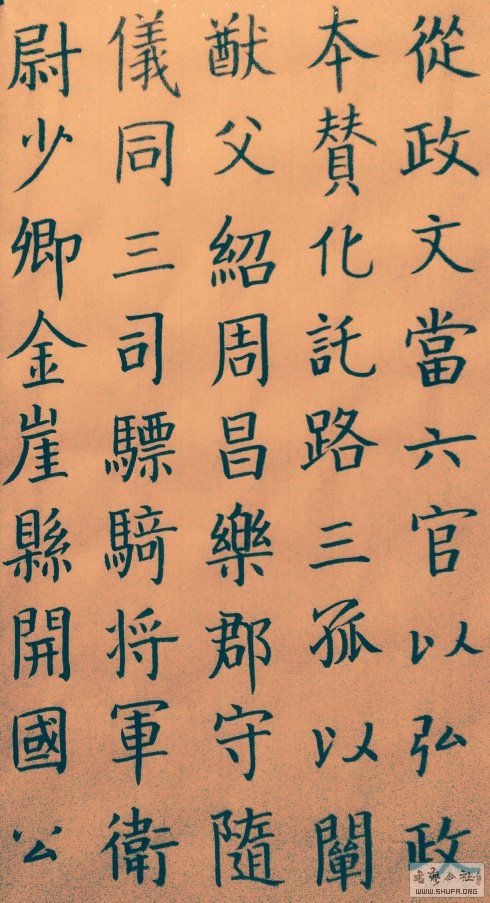 從政文當六官以弘政
夲賛化託路三孤以闡
猷父紹周昌樂郡守隨
儀同三司驃騎将軍衛
尉少卿金崖縣開國公
WWW.SHUFA.ORG